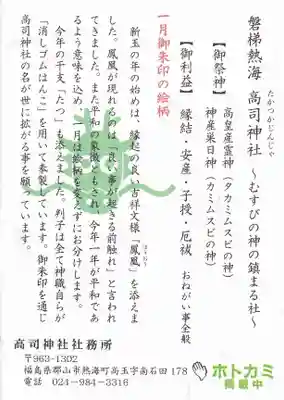 磐梯熱海 高司神社 ～むすびの神の鎮まる社～
たかつかじんじゃ
【御祭神】
高皇産霊神(タカミムスビの神)
神産巣日神(カミムスビの神)
【御利益】
縁結・安産・子授・厄祓 おねがい事全般
一月御朱印の絵柄
新玉の年の始めは、縁起の良い吉祥文様「鳳凰」を添えま
ほうおう
した。鳳凰が現れるのは「良い事が起きる前触れ」と言われ
てきました。また平和の象徴ともされ、今年一年が平和であ
るよう意味を込め、一月は絵柄を変えずにお分けします。
今年の干支、「たつ」も添えました。判子は全て神職自らが
「消しゴムはんこ」を用いて奉製しています。御朱印を通じ
高司神社の名が世に拡がる事を願っています。
高司神社社務所
〒963-1302
福島県郡山市熱海町高玉字南石田178
電話 024-984-3316
ホトカミ
掲載中